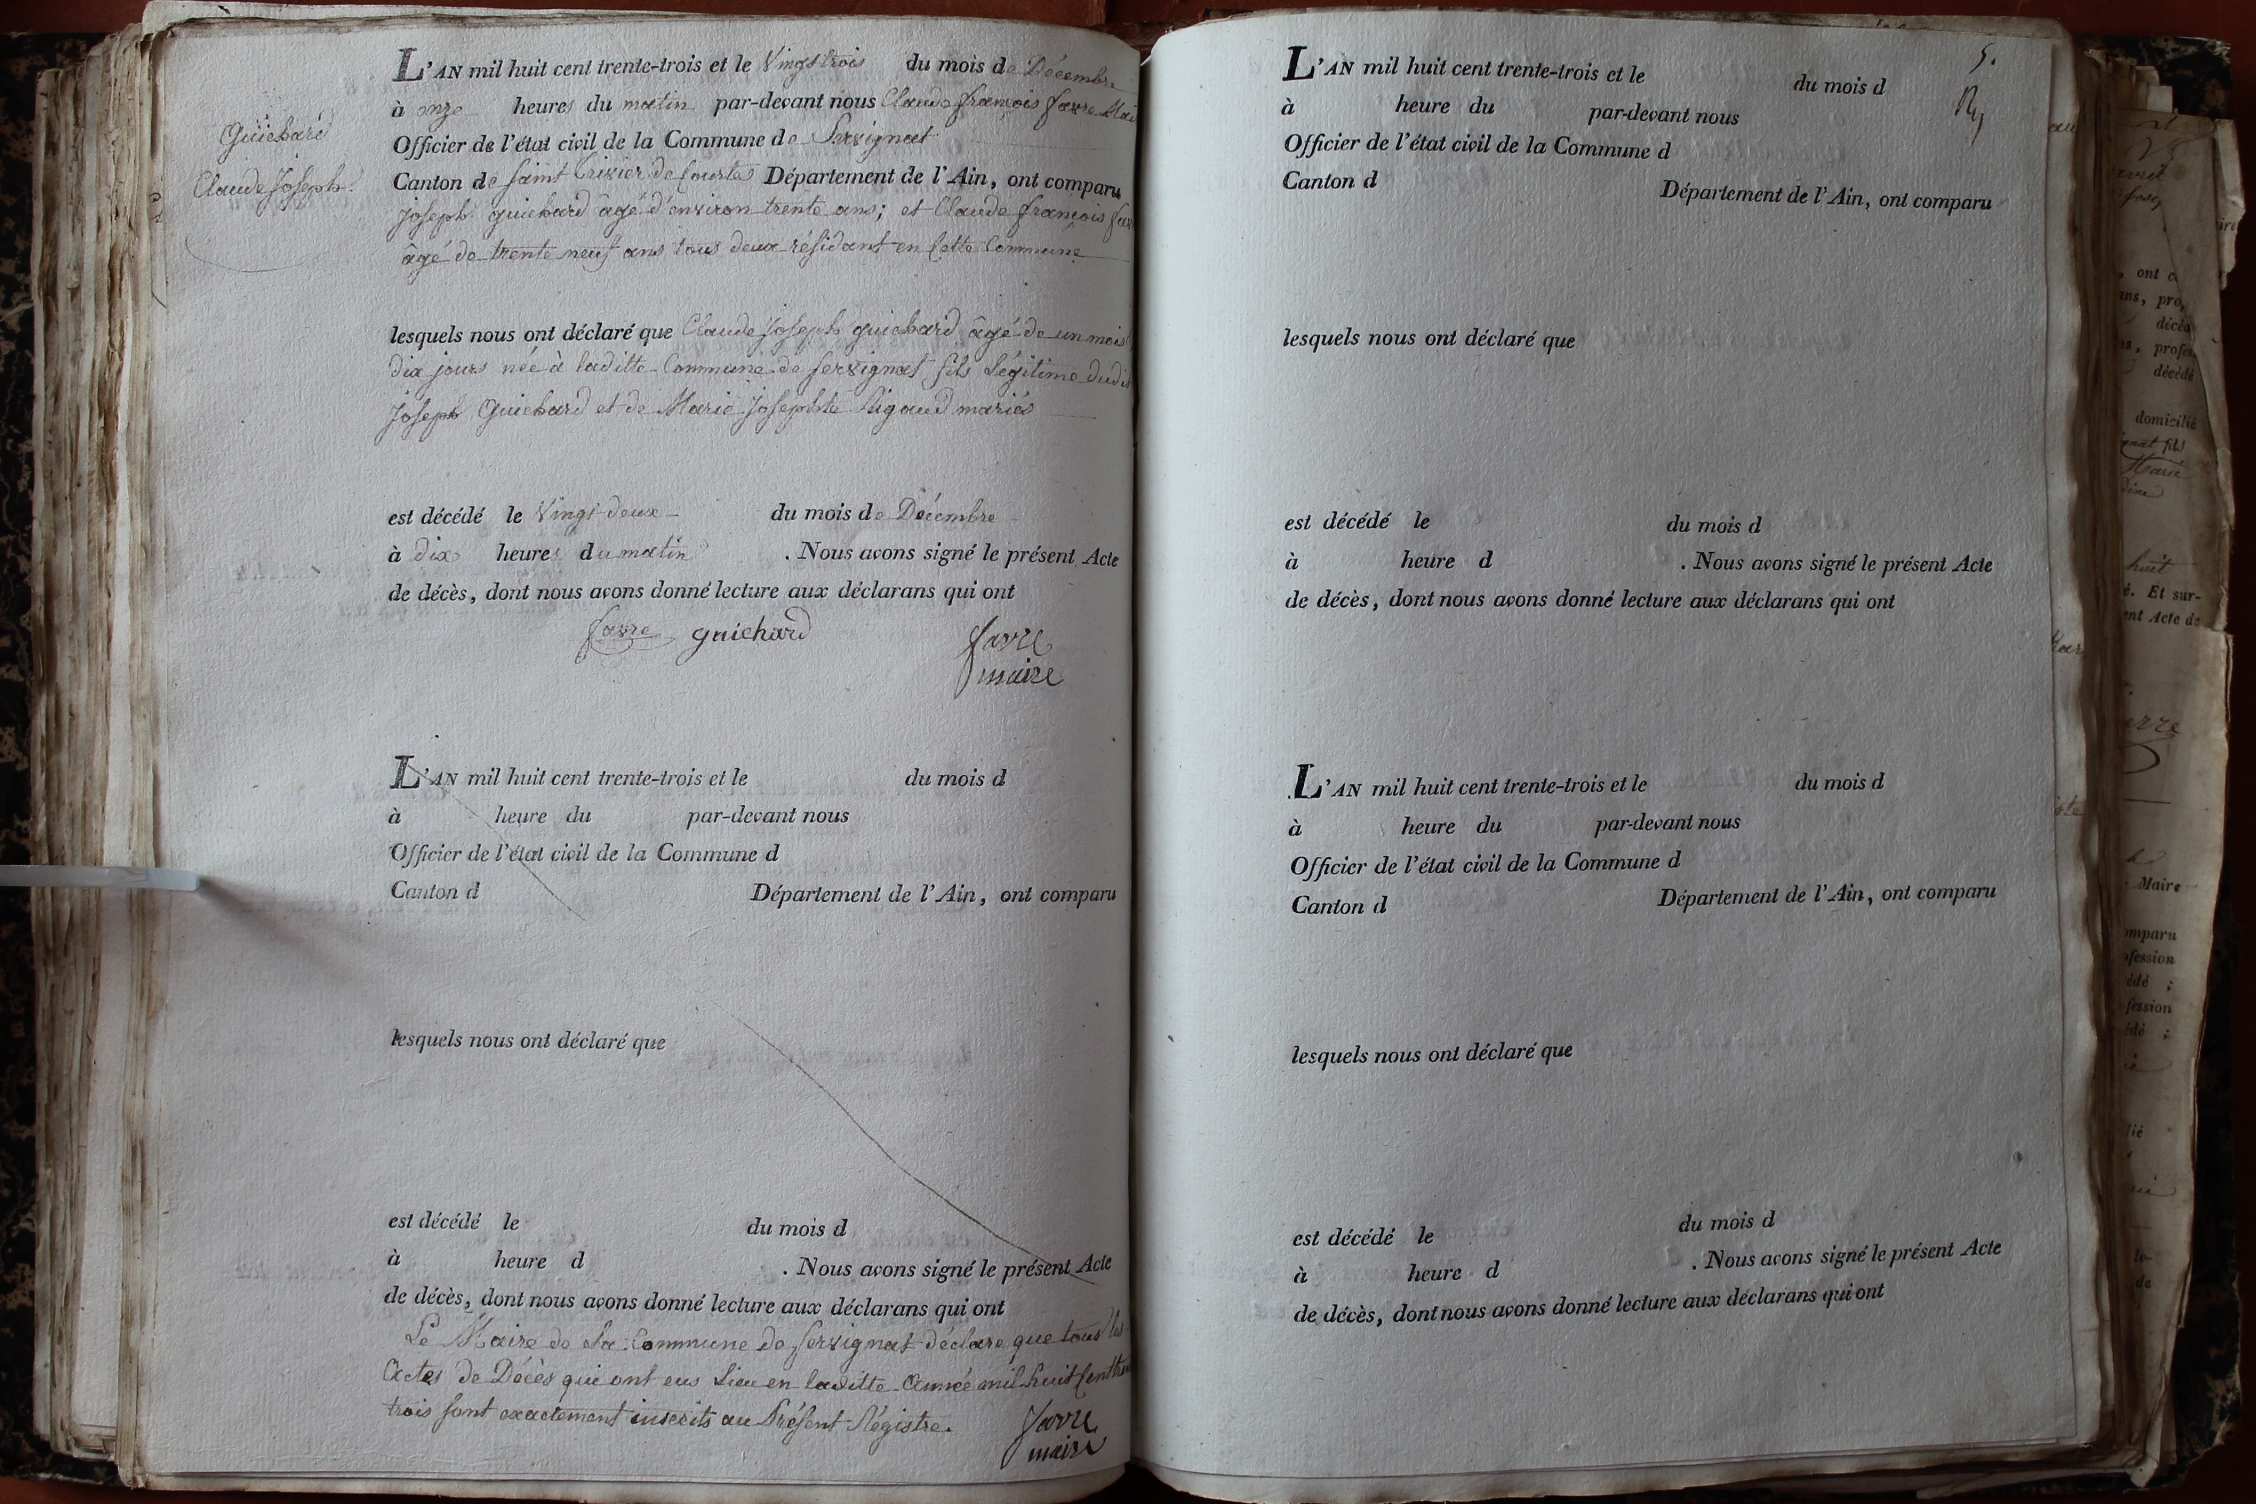 Guichard
Claude Joseph.
L'AN mil huit cent trente-trois et le Vingt trois du mois de Décembre
à onze heures du matin par-devant nous Claude françois favre
Officier de l'état civil de la Commune de Servignat
Canton de saint Trivier de Courtes Département de l'Ain, ont comparu
Joseph guichard âgé d'environ trente ans; et Claude françois
âgé de trente neuf ans tous deux résidant en Cette Commune
lesquels nous ont déclaré que Claude Joseph guichard âgé de un mois
dix jours née à laditte Commune de servignat fils Légitime dudit
Joseph Guichard et de Marie Josephte Rigaud mariés
est décédé le Vingt deux du mois de Décembre
à dix heures du matin . Nous avons signé le présent Acte
de décès, dont nous avons donné lecture aux déclarans qui ont
favre guichard favre
maire
L'AN mil huit cent trente-trois et le du mois d
à heure du par-devant nous
Officier de l'état civil de la Commune d
Canton d Département de l'Ain, ont comparu
lesquels nous ont déclaré que
est décédé le du mois d
à heure d . Nous avons signé le présent Acte
de décès, dont nous avons donné lecture aux déclarans qui ont
Le Maire de La Commune de servignat déclare que tous les
Actes de Décès qui ont eus Lieu en laditte année mil huit Cent
trois sont exactement inscrits au Présent Régistre.
favre
maire
5.
L'AN mil huit cent trente-trois et le du mois d
à heure du par-devant nous
Officier de l'état civil de la Commune d
Canton d Département de l'Ain, ont comparu
lesquels nous ont déclaré que
est décédé le du mois d
à heure d . Nous avons signé le présent Acte
de décès, dont nous avons donné lecture aux déclarans qui ont
L'AN mil huit cent trente-trois et le du mois d
à heure du par-devant nous
Officier de l'état civil de la Commune d
Canton d Département de l'Ain, ont comparu
lesquels nous ont déclaré que
est décédé le du mois d
à heure d . Nous avons signé le présent Acte
de décès, dont nous avons donné lecture aux déclarans qui ont